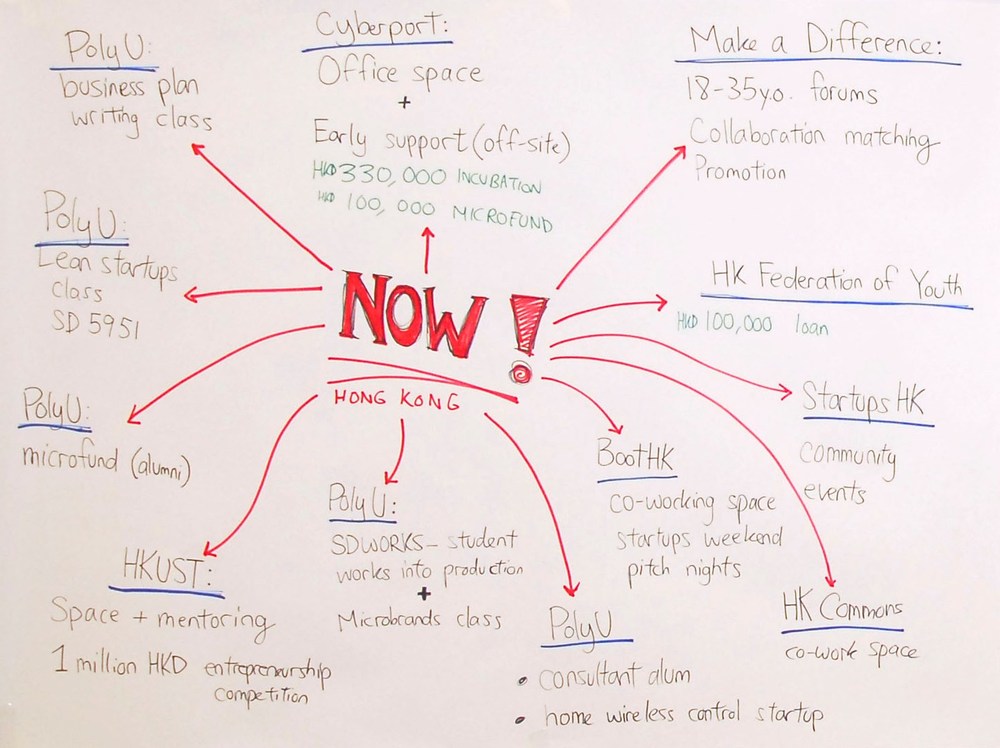 PolyU:
business plan
writing class
Cyberport:
Office space
+
Early support (off-site)
HKD 330,000 INCUBATION
HKD 100,000 MICROFUND
Make a Difference:
18-35y.o. forums
Collaboration matching
Promotion
PolyU:
Lean startups
class
SD 5951
NOW!
HONG KONG
HK Federation of Youth
HKD 100,000 loan
PolyU:
microfund (alumni)
StartupsHK
community
events
BootHK
co-working space
startups weekend
pitch nights
PolyU:
SDWORKS - student
works into production
+
Microbrands class
HKUST:
Space + mentoring
1 million HKD entrepreneurship
competition
PolyU
• consultant alum
• home wireless control startup
HK Commons
co-work space